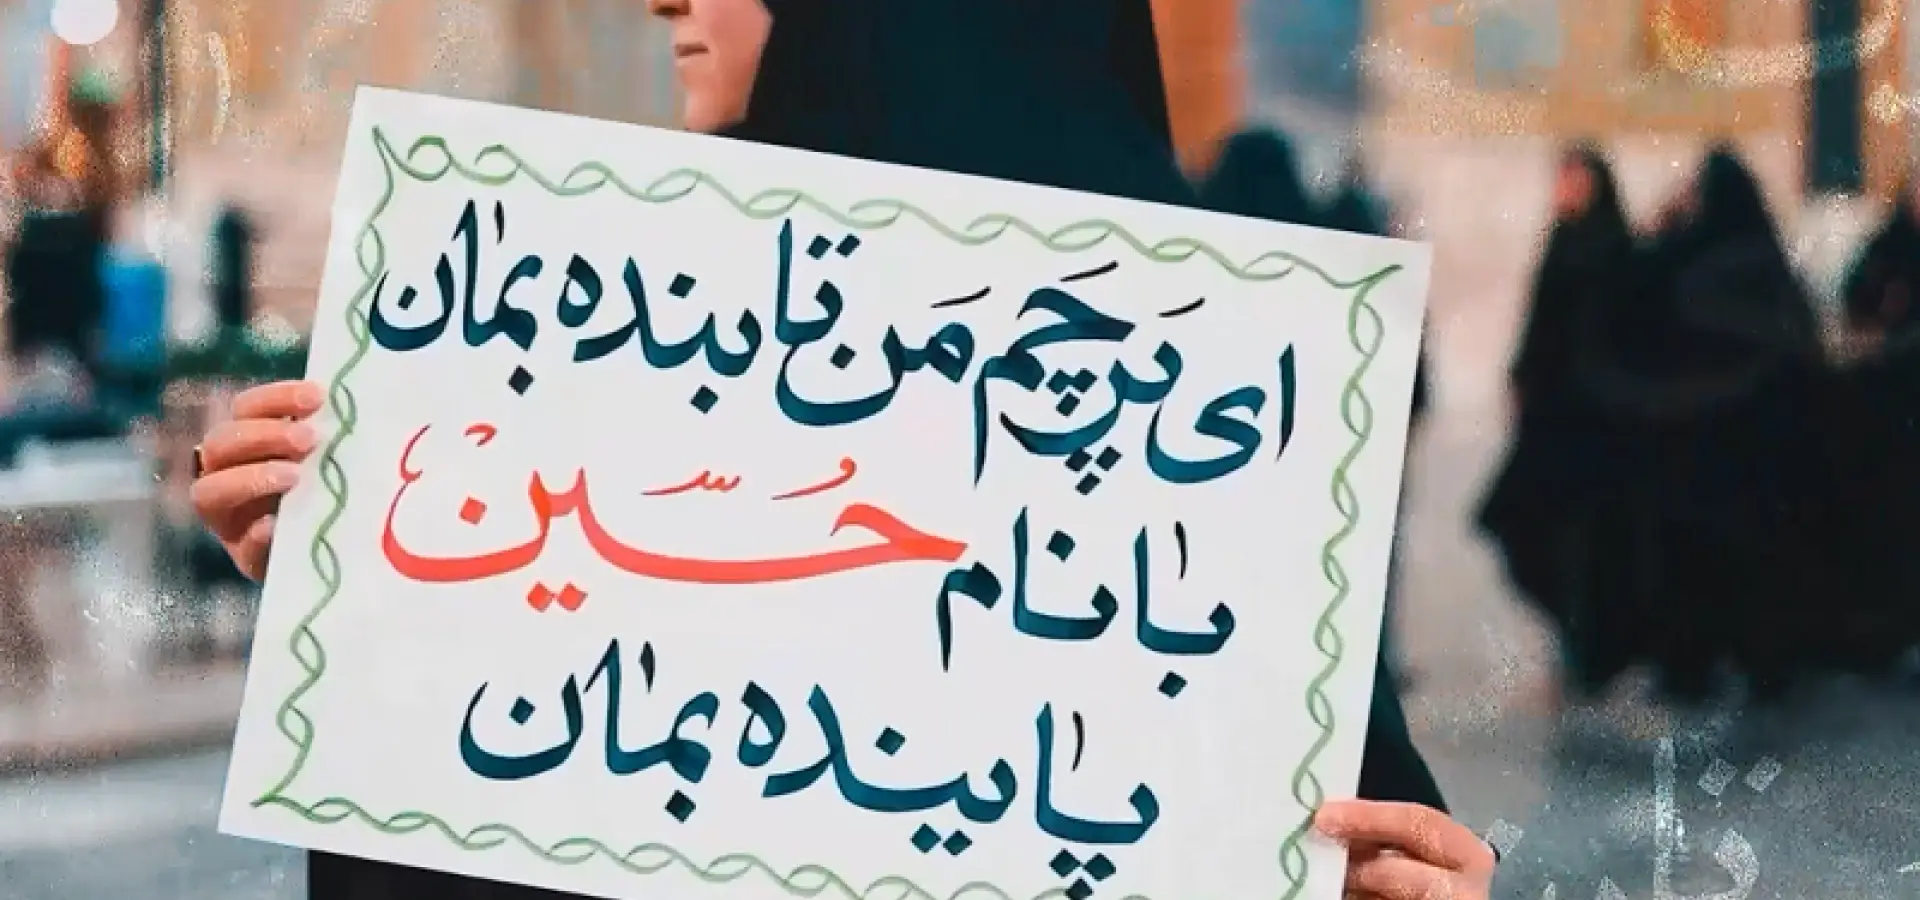 ای پَرچَم مَن تابنده بمان
با نام حُسین
پاینده بمان